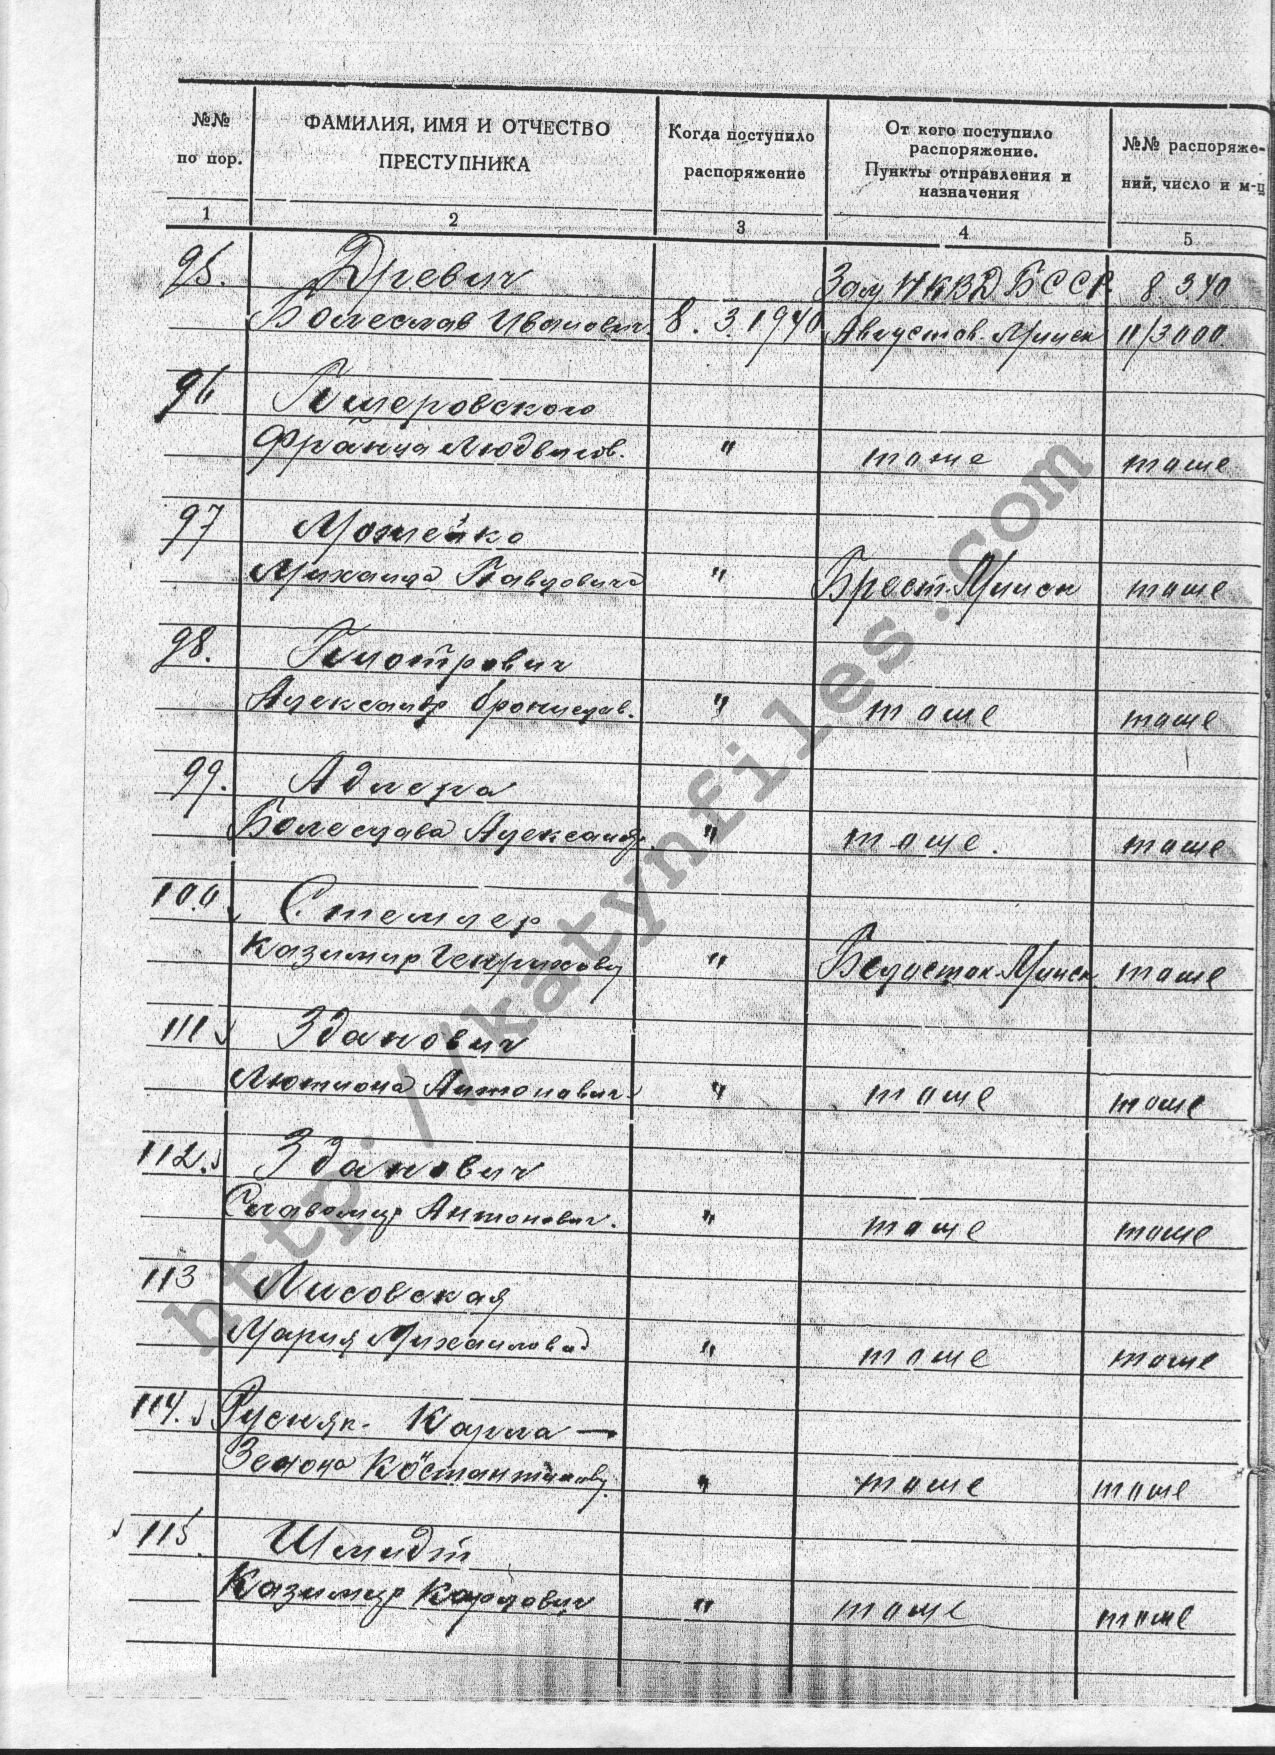 №№
по пор.
ФАМИЛИЯ, ИМЯ И ОТЧЕСТВО
ПРЕСТУПНИКА
Когда поступило
распоряжение
От кого поступило
распоряжение.
Пункты отправления и
назначения
№№ распоряже-
ний, число и м-ц
1 2 3 4 5
95. Древич Зам НКВД БССР 8 3 40
Болеслав Иванович. 8. 3. 1940 Августов. Минск 11/3000
96
Франца Людвигов. " тоже тоже
97 Можейко
Михаила Павловича " Брест. Минск тоже
98. Пиотрович
Александр Бронислав. " тоже тоже
99. Адлера
Болеслава Александр. " тоже. тоже
100 Стемлер
Казимир Генрихову " Белосток. Минск тоже
111 Зданович
Антонович " тоже тоже
112. Зданович
Славомир Антонович. " тоже тоже
113 Лисовская
Мария Михаиловна " тоже тоже
114. Русняк. Карла —
Зенона Костантинову. " тоже тоже
115. Шмидт
Казимир Карлович " тоже тоже
http://katynfiles.com